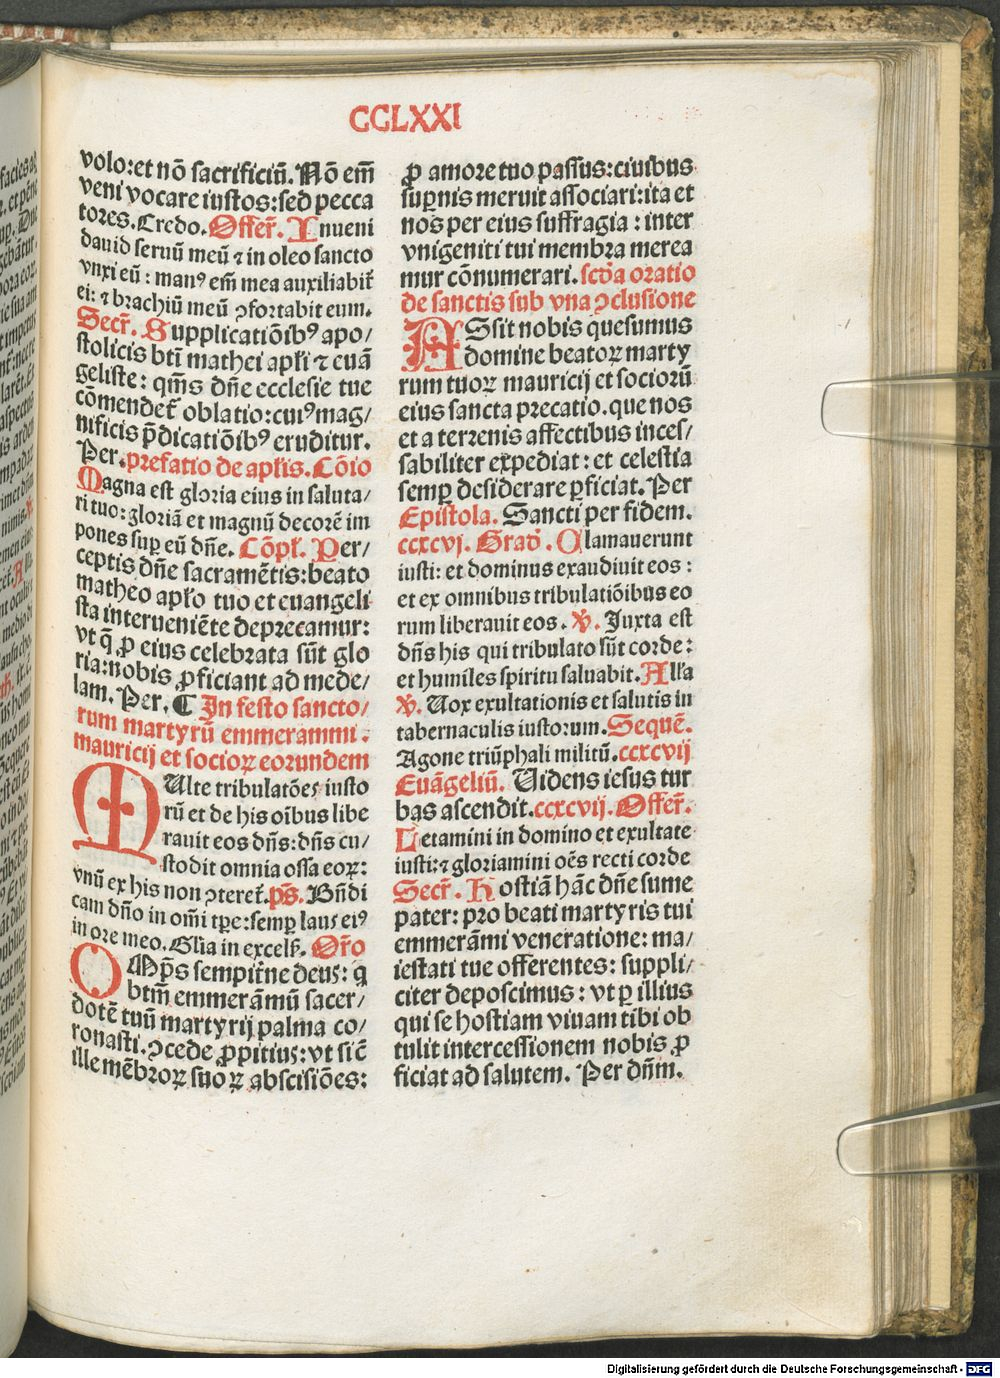 CCLXXI
volo:et nō sacrificiū. Nō em̄
veni vocare iustos:sed pecca
tores. Credo. Offer̄. Inueni
dauid seruū meū ⁊ in oleo sancto
vnxi eū: manꝰ em̄ mea auxiliabit̄
ei: ⁊ brachiū meū ↄfortabit eum.
Secr̄. Supplicatiōibꝰ apo/
stolicis bt̄i mathei apl̄i ⁊ euā
geliste: qm̄s dn̄e ecclesie tue
cōmendet̄ oblatio:cuiꝰ mag/
nificis p̄dicatiōibꝰ eruditur.
Per. prefatio de apl̄is. Cōio
Magna est gloria eius in saluta/
ri tuo:gloriā et magnū decorē im
pones suꝑ eū dn̄e. Cōpl̄. Per/
ceptis dn̄e sacramētis:beato
matheo apl̄o tuo et euangeli
sta interueniēte deprecamur:
vt q̄ ꝓ eius celebrata sūt glo
ria:nobis ꝓficiant ad mede/
lam. Per. ¶ In festo sancto/
rum martyrū emmerammi.
mauricij et socioꝝ eorundem
MUlte tribulatōes iusto
rū et de his oībus libe
rauit eos dn̄s:dn̄s cu/
stodit omnia ossa eoꝝ:
vnū ex his non ↄteret̄. ps̄. Bn̄di
cam dn̄o in om̄i tp̄e:semꝑ laus eiꝰ
in ore meo. Glia in excels̄. Or̄o
OMp̄s sempit̄ne deus: q
btm̄ emmerāmū sacer/
dotē tuū martyrij palma co/
ronasti. ↄcede ꝓpitius:vt sic̄
ille mēbroꝝ suoꝝ abscisiōes:
ꝓ amore tuo passus:ciuibus
suꝑnis meruit associari:ita et
nos per eius suffragia: inter
vnigeniti tui membra merea
mur cōnumerari. scd̄a oratio
de sanctis sub vna ↄclusione
ASsit nobis quesumus
domine beatoꝝ marty
rum tuoꝝ mauricij et socioꝝū
eius sancta precatio. que nos
et a terrenis affectibus inces/
sabiliter expediat: et celestia
semꝑ desiderare ꝑficiat. Per
Epistola. Sancti per fidem.
ccxcvj. Grad̄. Clamauerunt
iusti: et dominus exaudiuit eos:
et ex omnibus tribulatiōibus eo
rum liberauit eos. ℣. Juxta est
dn̄s his qui tribulato sūt corde:
et humiles spiritu saluabit. Alla
℣. Uox exultationis et salutis in
tabernaculis iustorum. Sequē.
Agone triūphali militū. ccxcvij
Euāgeliū. Videns iesus tur
bas ascendit. ccxcvij. Offer̄.
Letamini in domino et exultate
iusti: ⁊ gloriamini oēs recti corde
Secr̄. Hostiā hāc dn̄e sume
pater: pro beati martyris tui
emmerāmi veneratione: ma/
iestati tue offerentes: suppli/
citer deposcimus: vt ꝑ illius
qui se hostiam viuam tibi ob
tulit intercessionem nobis ꝓ
ficiat ad salutem. Per dn̄m.
Digitalisierung gefördert durch die Deutsche Forschungsgemeinschaft - DFG